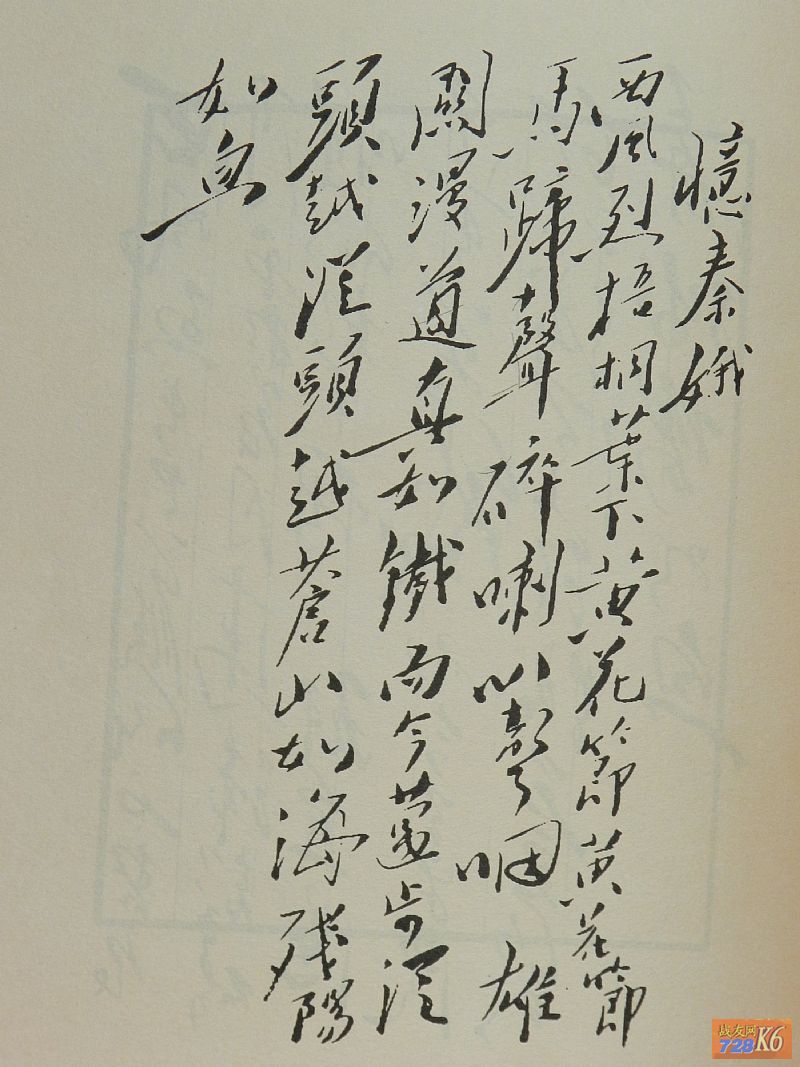 憶秦娥
西風烈梧桐葉下黄花節黄花節
馬蹄聲碎喇叭聲咽 雄
關漫道真如鐵而今邁步從
頭越從頭越蒼山如海殘陽
如血
战友网
728 K6